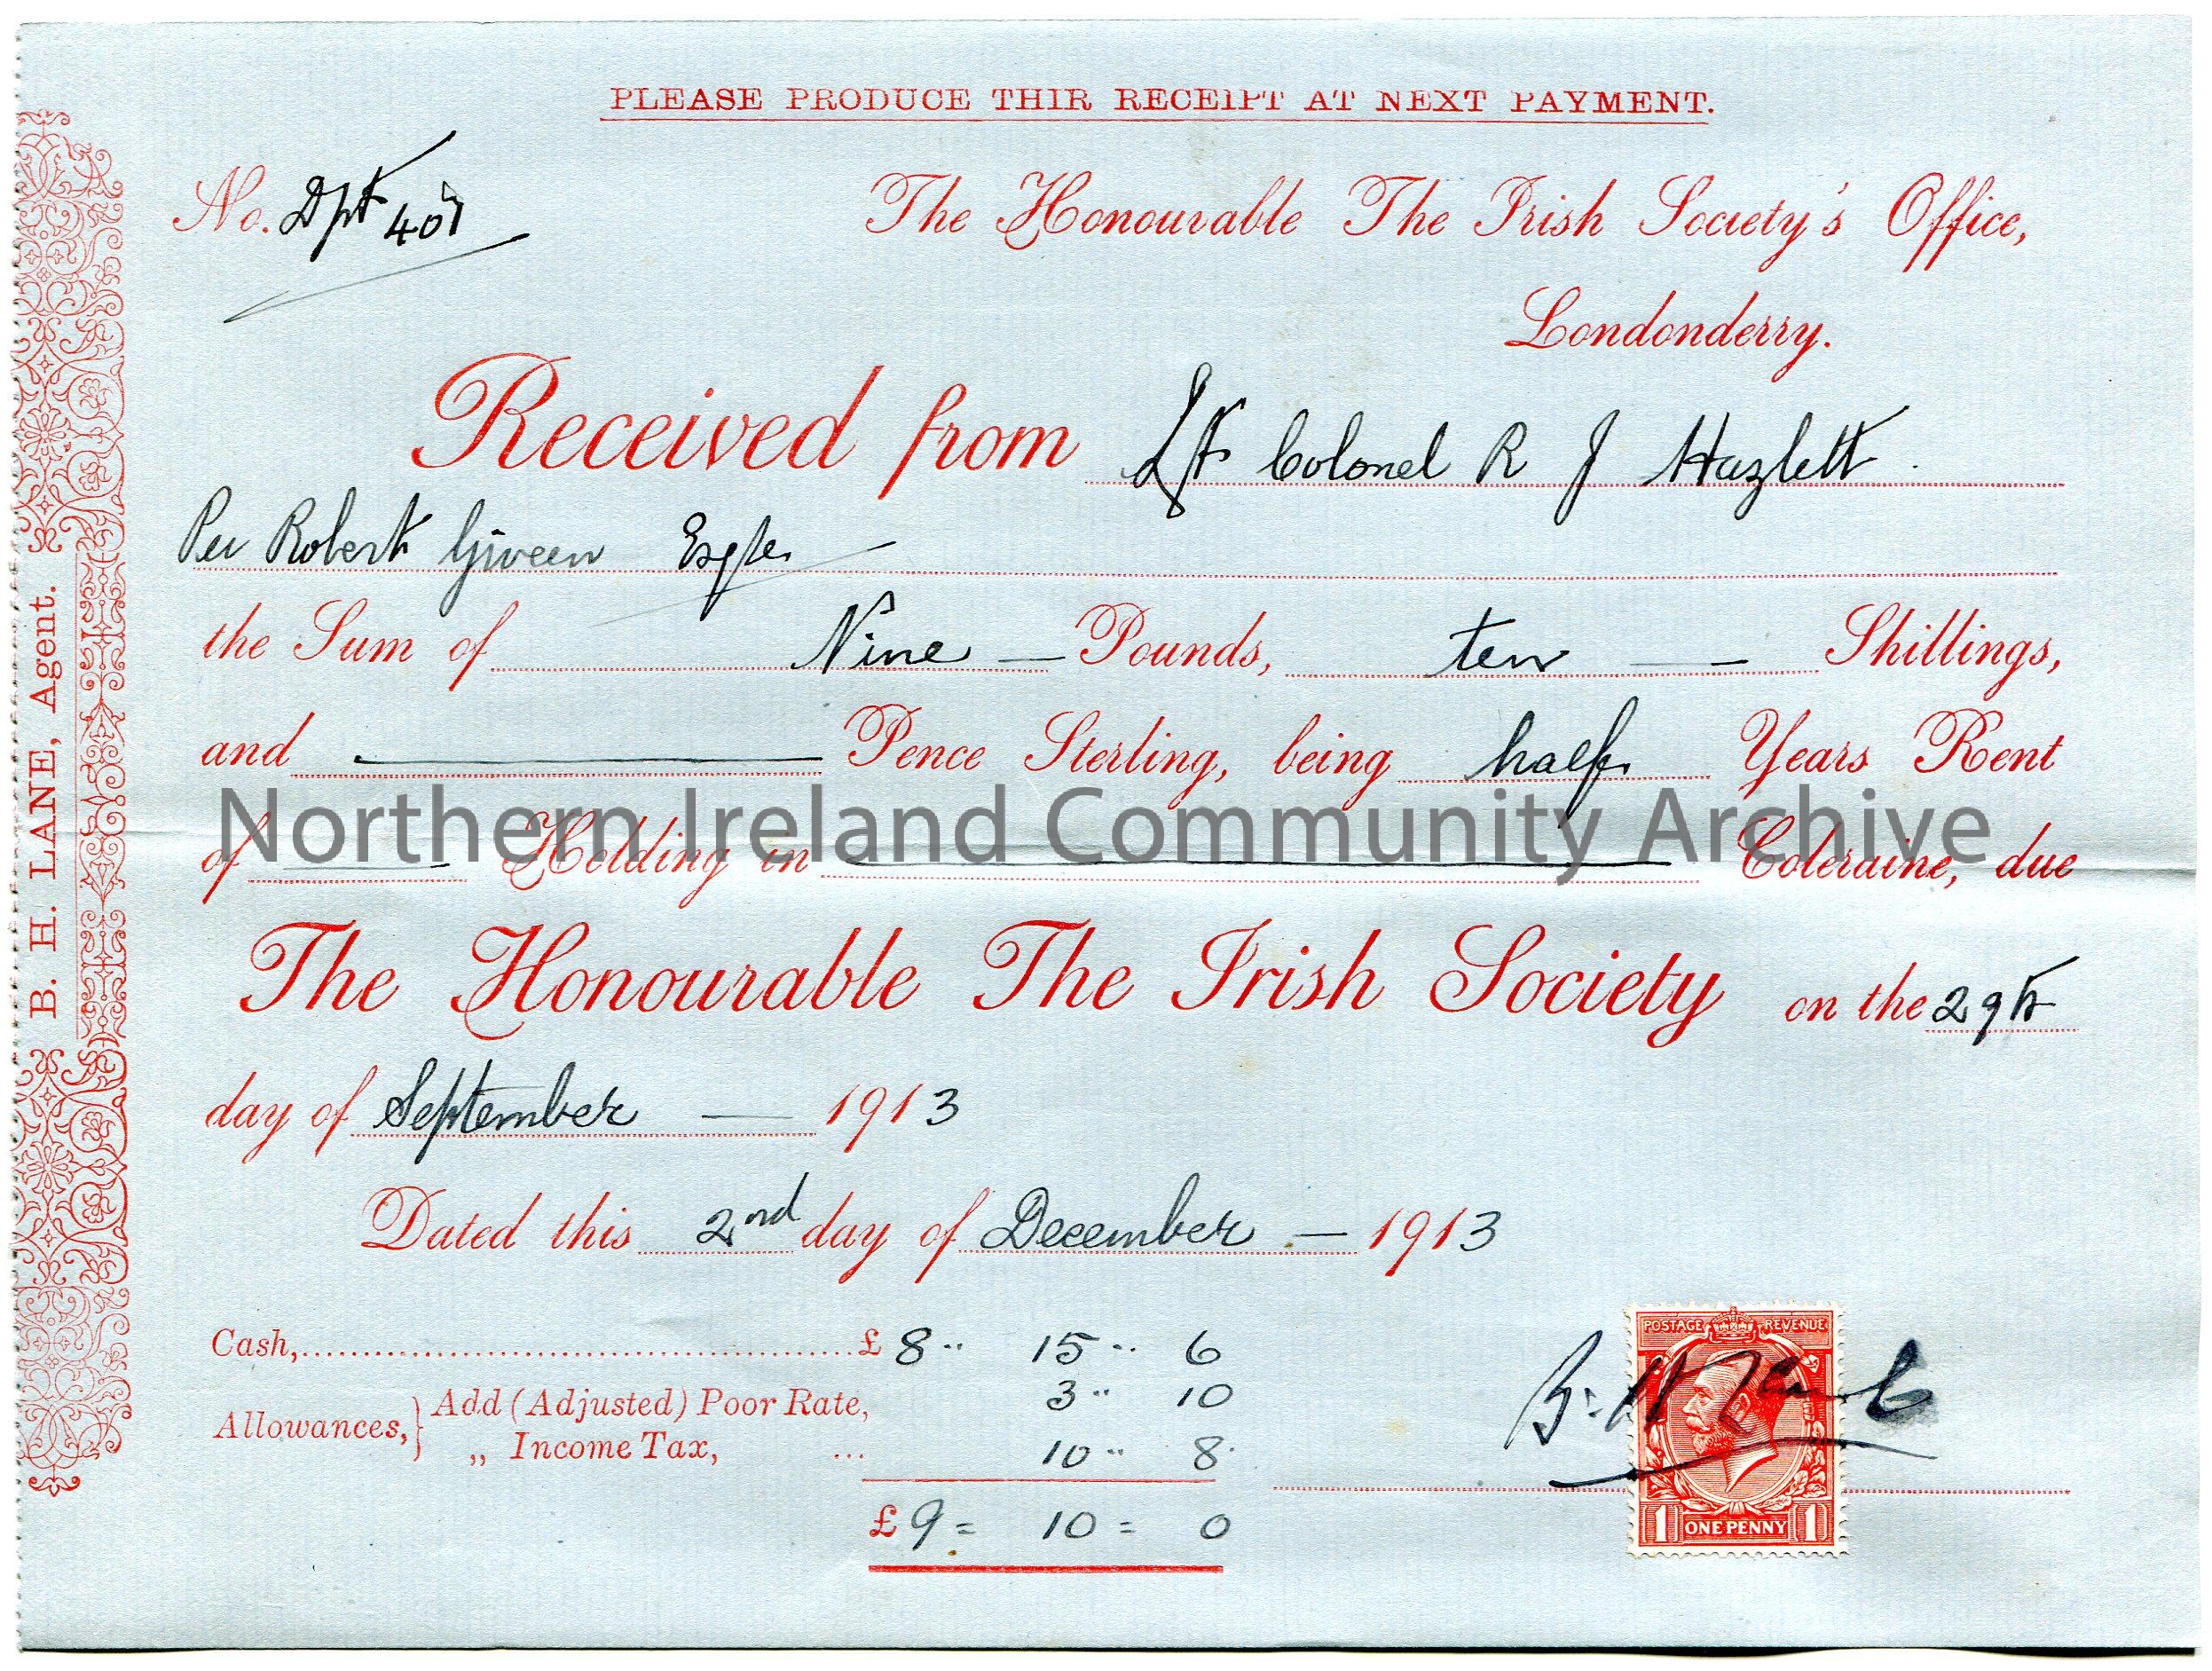 PLEASE PRODUCE THIR RECEIPT AT NEXT PAYMENT.
No. Dpt 401
The Honourable The Irish Society's Office,
Londonderry.
Received from Lt Colonel R J Hazlett
Per Robert Giveen Esqre
the Sum of Nine — Pounds, ten — Shillings,
and — Pence Sterling, being half Years Rent
of — Holding in — Coleraine, due
Northern Ireland Community Archive
The Honourable The Irish Society on the 29th
day of September — 1913
Dated this 2nd day of December — 1913
Cash, £ 8 .. 15 .. 6
Allowances, } Add (Adjusted) Poor Rate, 3 .. 10
„ Income Tax, ... 10 .. 8
£ 9 = 10 = 0
B. H. LANE, Agent.
B. H. Lane
POSTAGE REVENUE
1 ONE PENNY 1